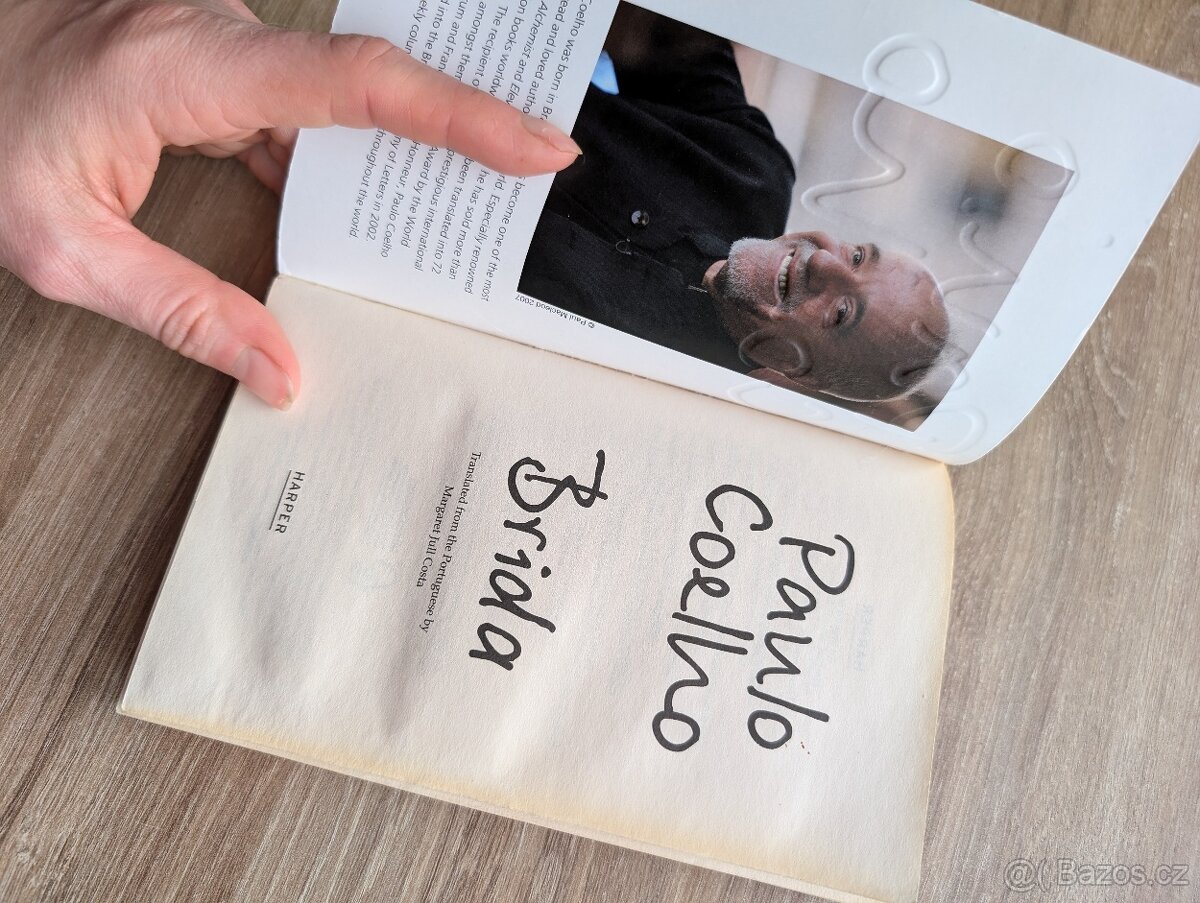 Coelho was born in become one of the most
and loved Especially renowned
Alchemist and he has sold more than
books been translated into 72
The recipient prestigious international
amongst Award by the World
and Honneur, Paulo Coelho
into the of Letters in 2002
throughout the world
© Paul Macleod 2007
Paulo
Coelho
Brida
Translated from the Portuguese by
Margaret Jull Costa
HARPER
@( Bazos.cz